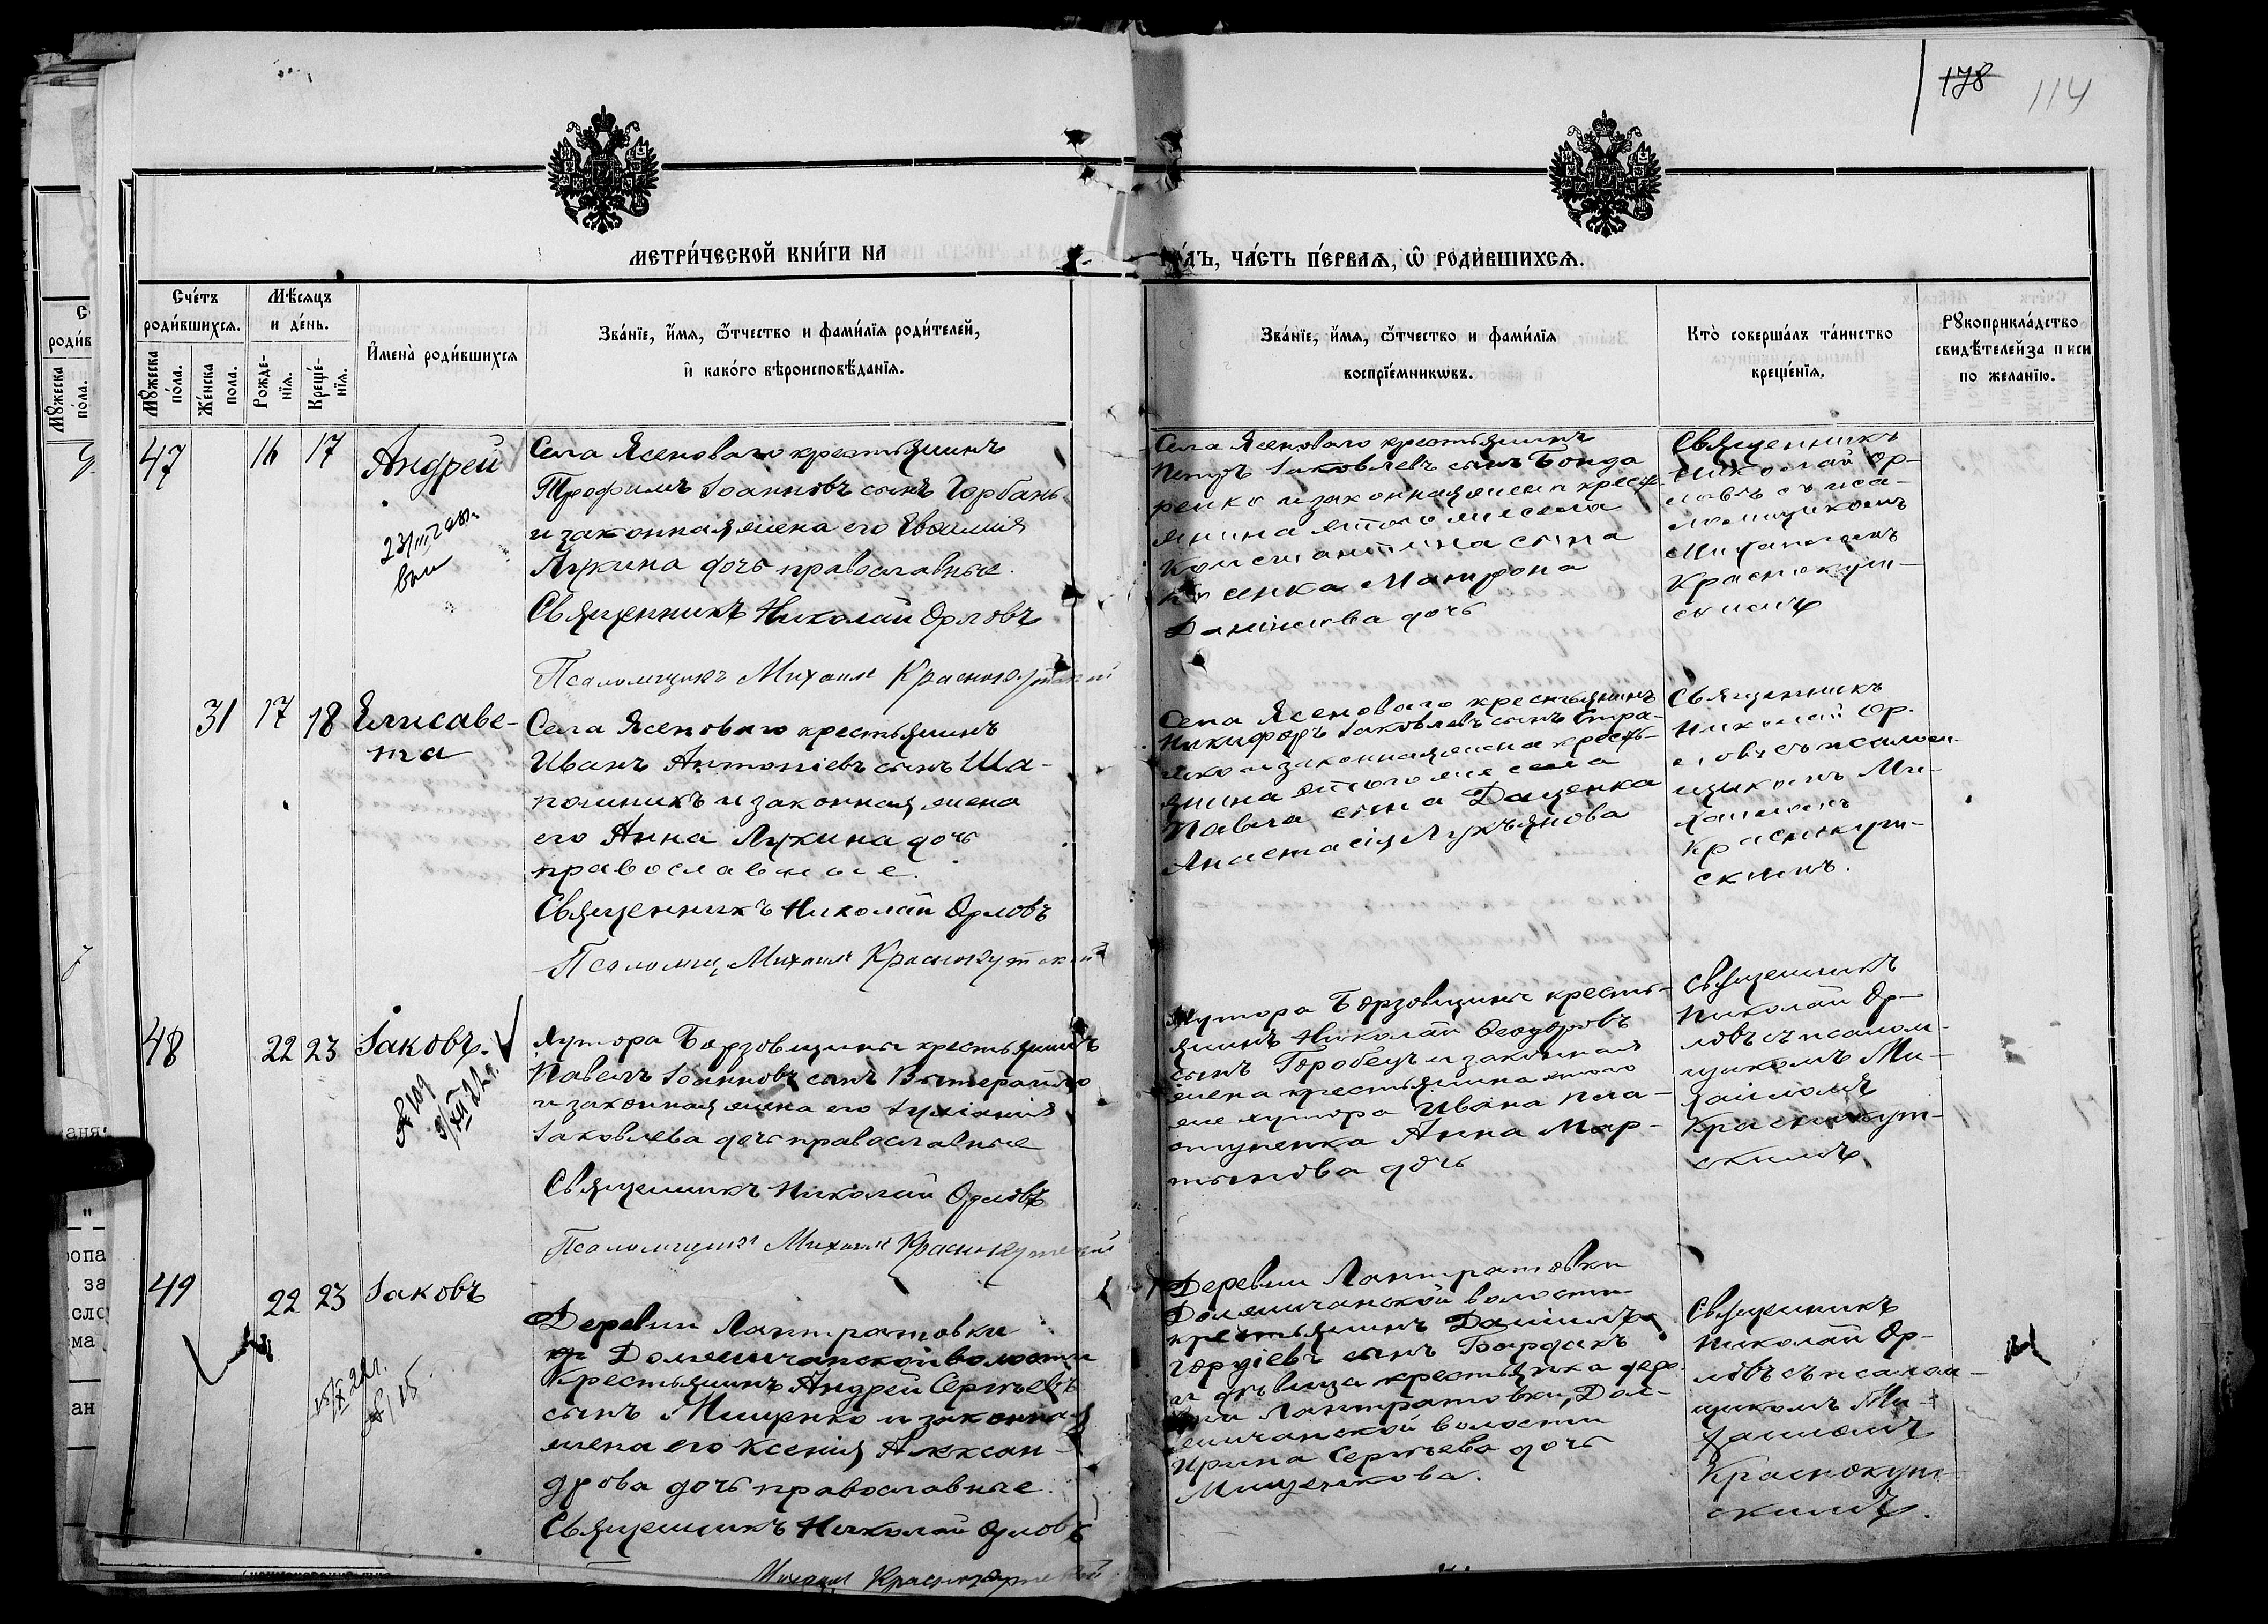 178 114
МЕТРИ́ЧЕСКОЙ КНИ́ГИ НА
ДЪ, ЧА́СТЬ ПЕ́РВАѦ, Ѡ РОДИ́ВШИХСѦ.
Сче́тъ роди́вшихсѧ.
Мꙋ́жеска по́ла.
Же́нска по́ла.
Мѣ́сѧцъ и де́нь.
Рожде-нїѧ.
Креще́-нїѧ.
И҆мена̀ роди́вшихсѧ
Зва́нїе, и҆́мѧ, ѻ҆́тчество и фами́лїѧ роди́телей,
и҆ како́гѡ вѣроисповѣ́данїѧ.
Зва́нїе, и҆́мѧ, ѻ҆́тчество и фами́лїѧ
воспрїе́мникѡвъ.
Кто̀ соверша́лъ та́инство
креще́нїѧ.
Рꙋкоприкла́дство
свидѣ́телей за писи
по жела́нїю.
47 16 17 Андрей
Села Ясеноваго крестьянинъ
Трофимъ Іоанновъ сынъ Горбань
и законная жена его Евфимія
Лукина дочь православные.
Священникъ Николай Орловъ
Псаломщикъ Михаилъ Краснокутскій
Села Ясеноваго крестьянинъ
Петръ Іаковлевъ сынъ Бонда
ренко и законная жена кресть
янина этого же села
Константина сына
Данілова дочь
Священникъ
Николай Ор-
ловъ съ пса-
ломщикомъ
Михаиломъ
Краснокут-
скимъ
31 17 18 Елисаве-
та
Села Ясеноваго крестьянинъ
Иванъ Антоніевъ сынъ Ша-
и законная жена
его Анна Лукина дочь
православные.
Священникъ Николай Орловъ
Псаломщ. Михаилъ Краснокутскій
Села Ясеноваго крестьянинъ
Никифоръ Іаковлевъ сынъ
и законная жена кресть-
янина этого же села
Павла сына Даценка
Анастасія Лукьянова
Священникъ
Николай Ор-
ловъ съ псалом-
щикомъ Ми-
хаиломъ
Краснокут-
скимъ.
48 22 23 Іаковъ.
Хутора Борзовщины крестьянинъ
Павелъ Іоанновъ сынъ
и законная жена его Іуліанія
Іаковлева дочь православные
Священникъ Николай Орловъ
Псаломщикъ Михаилъ Краснокутскій
Хутора Борзовщины кресть-
янинъ Николай Ѳеодоровъ
сынъ Горобецъ и законная
жена крестьянина этого
же хутора Ивана
Анна Мар-
тынова дочь
Священникъ
Николай Ор-
ловъ съ псалом-
щикомъ Ми-
хаиломъ
Краснокут-
скимъ
49 22 23 Іаковъ
Деревни Лантратовки
Долж
волости
Крестьянинъ Андрей Сергѣевъ
сынъ Мищенко и законная
жена его Ксенія Алексан-
дрова дочь православные.
Священникъ Николай Орловъ
Михаилъ Краснокутскій
Деревни Лантратовки
волости
крестьянинъ Даніилъ
Гордіевъ сынъ Бардакъ
и дѣвица крестьянка дере-
вни Лантратовки,
волости
Ирина Сергѣева дочь
Мищенкова.
Священникъ
Николай Ор-
ловъ съ псалом-
щикомъ Ми-
хаиломъ
Краснокут-
скимъ.